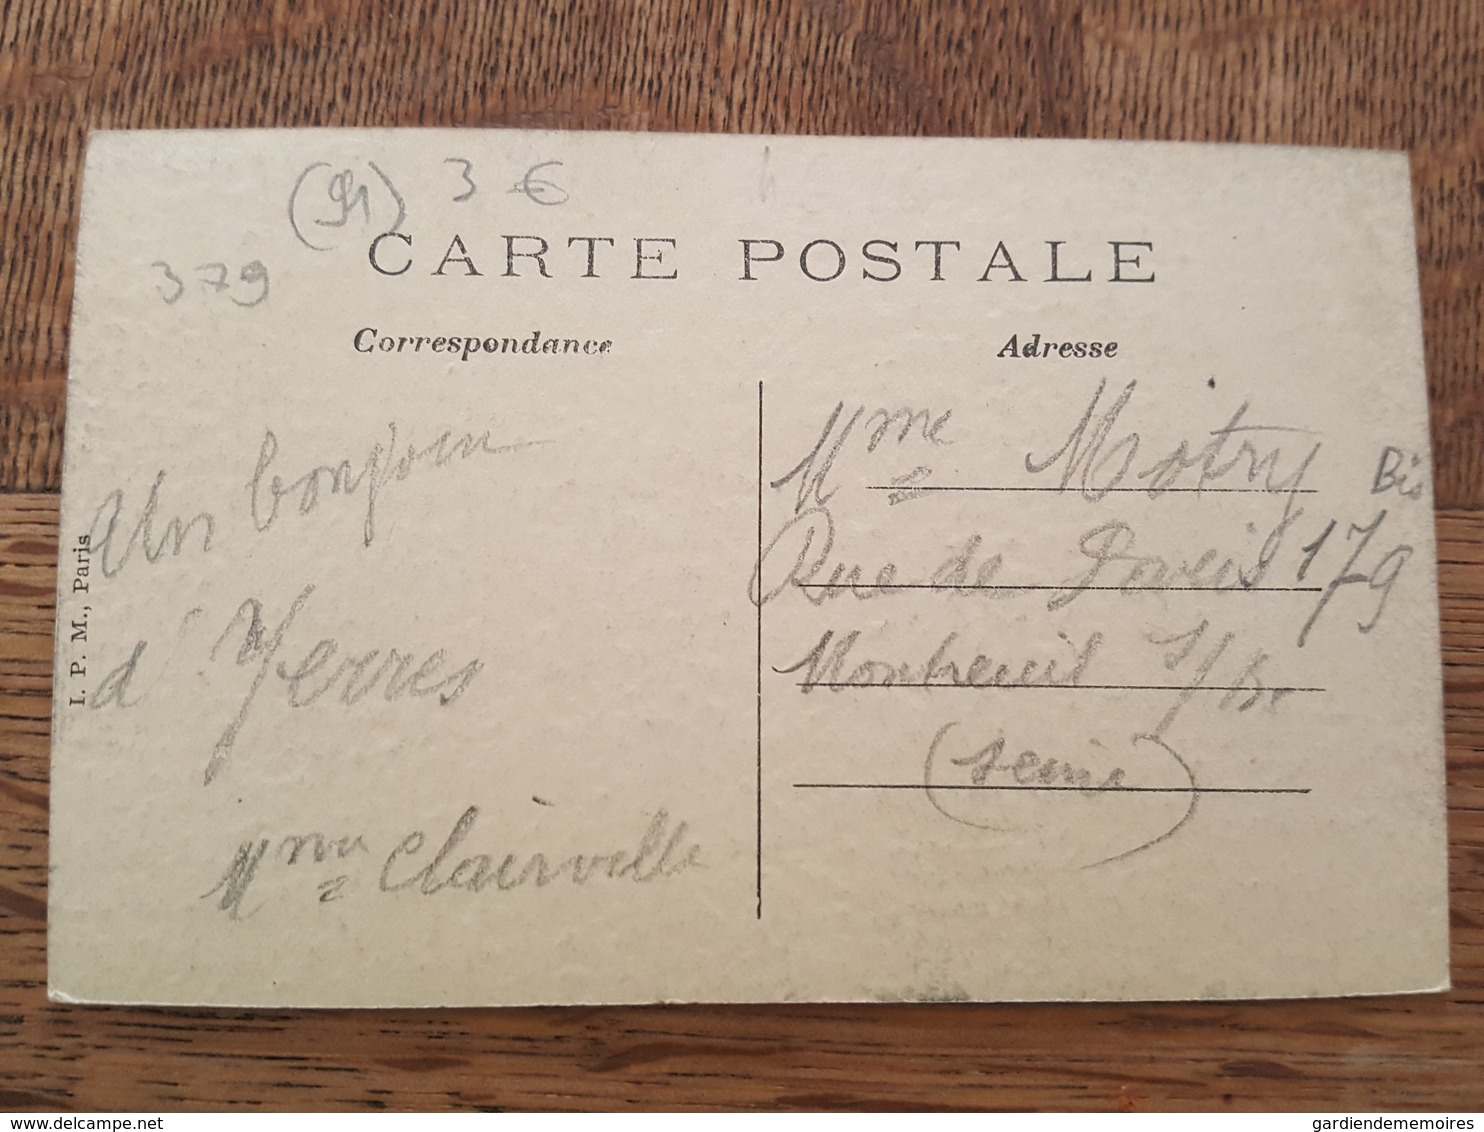 (91) 3 €
379
CARTE POSTALE
Correspondance
Adresse
Un bonjour
d'Yerres
Mme Clairville
Mme Motry
Rue de 179 Bis
Montreuil s/Bs
(Seine)
I. P. M., Paris
gardiendememoires
delcampe.net